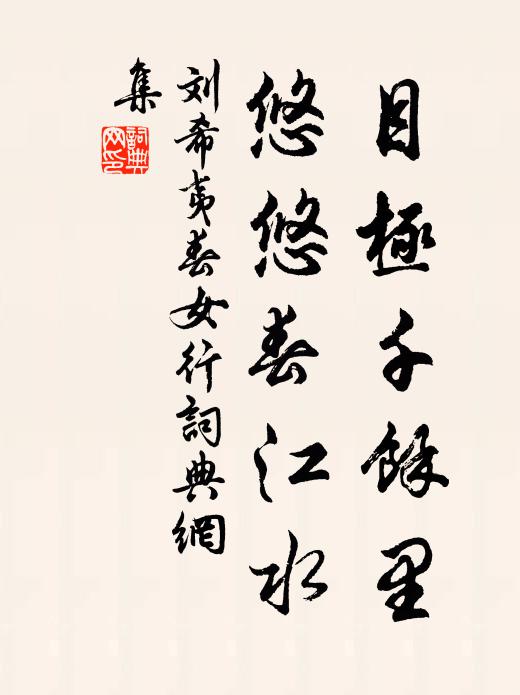 目極千餘里
悠悠春江水
刘希夷春女行詞典網
集
詞典網印